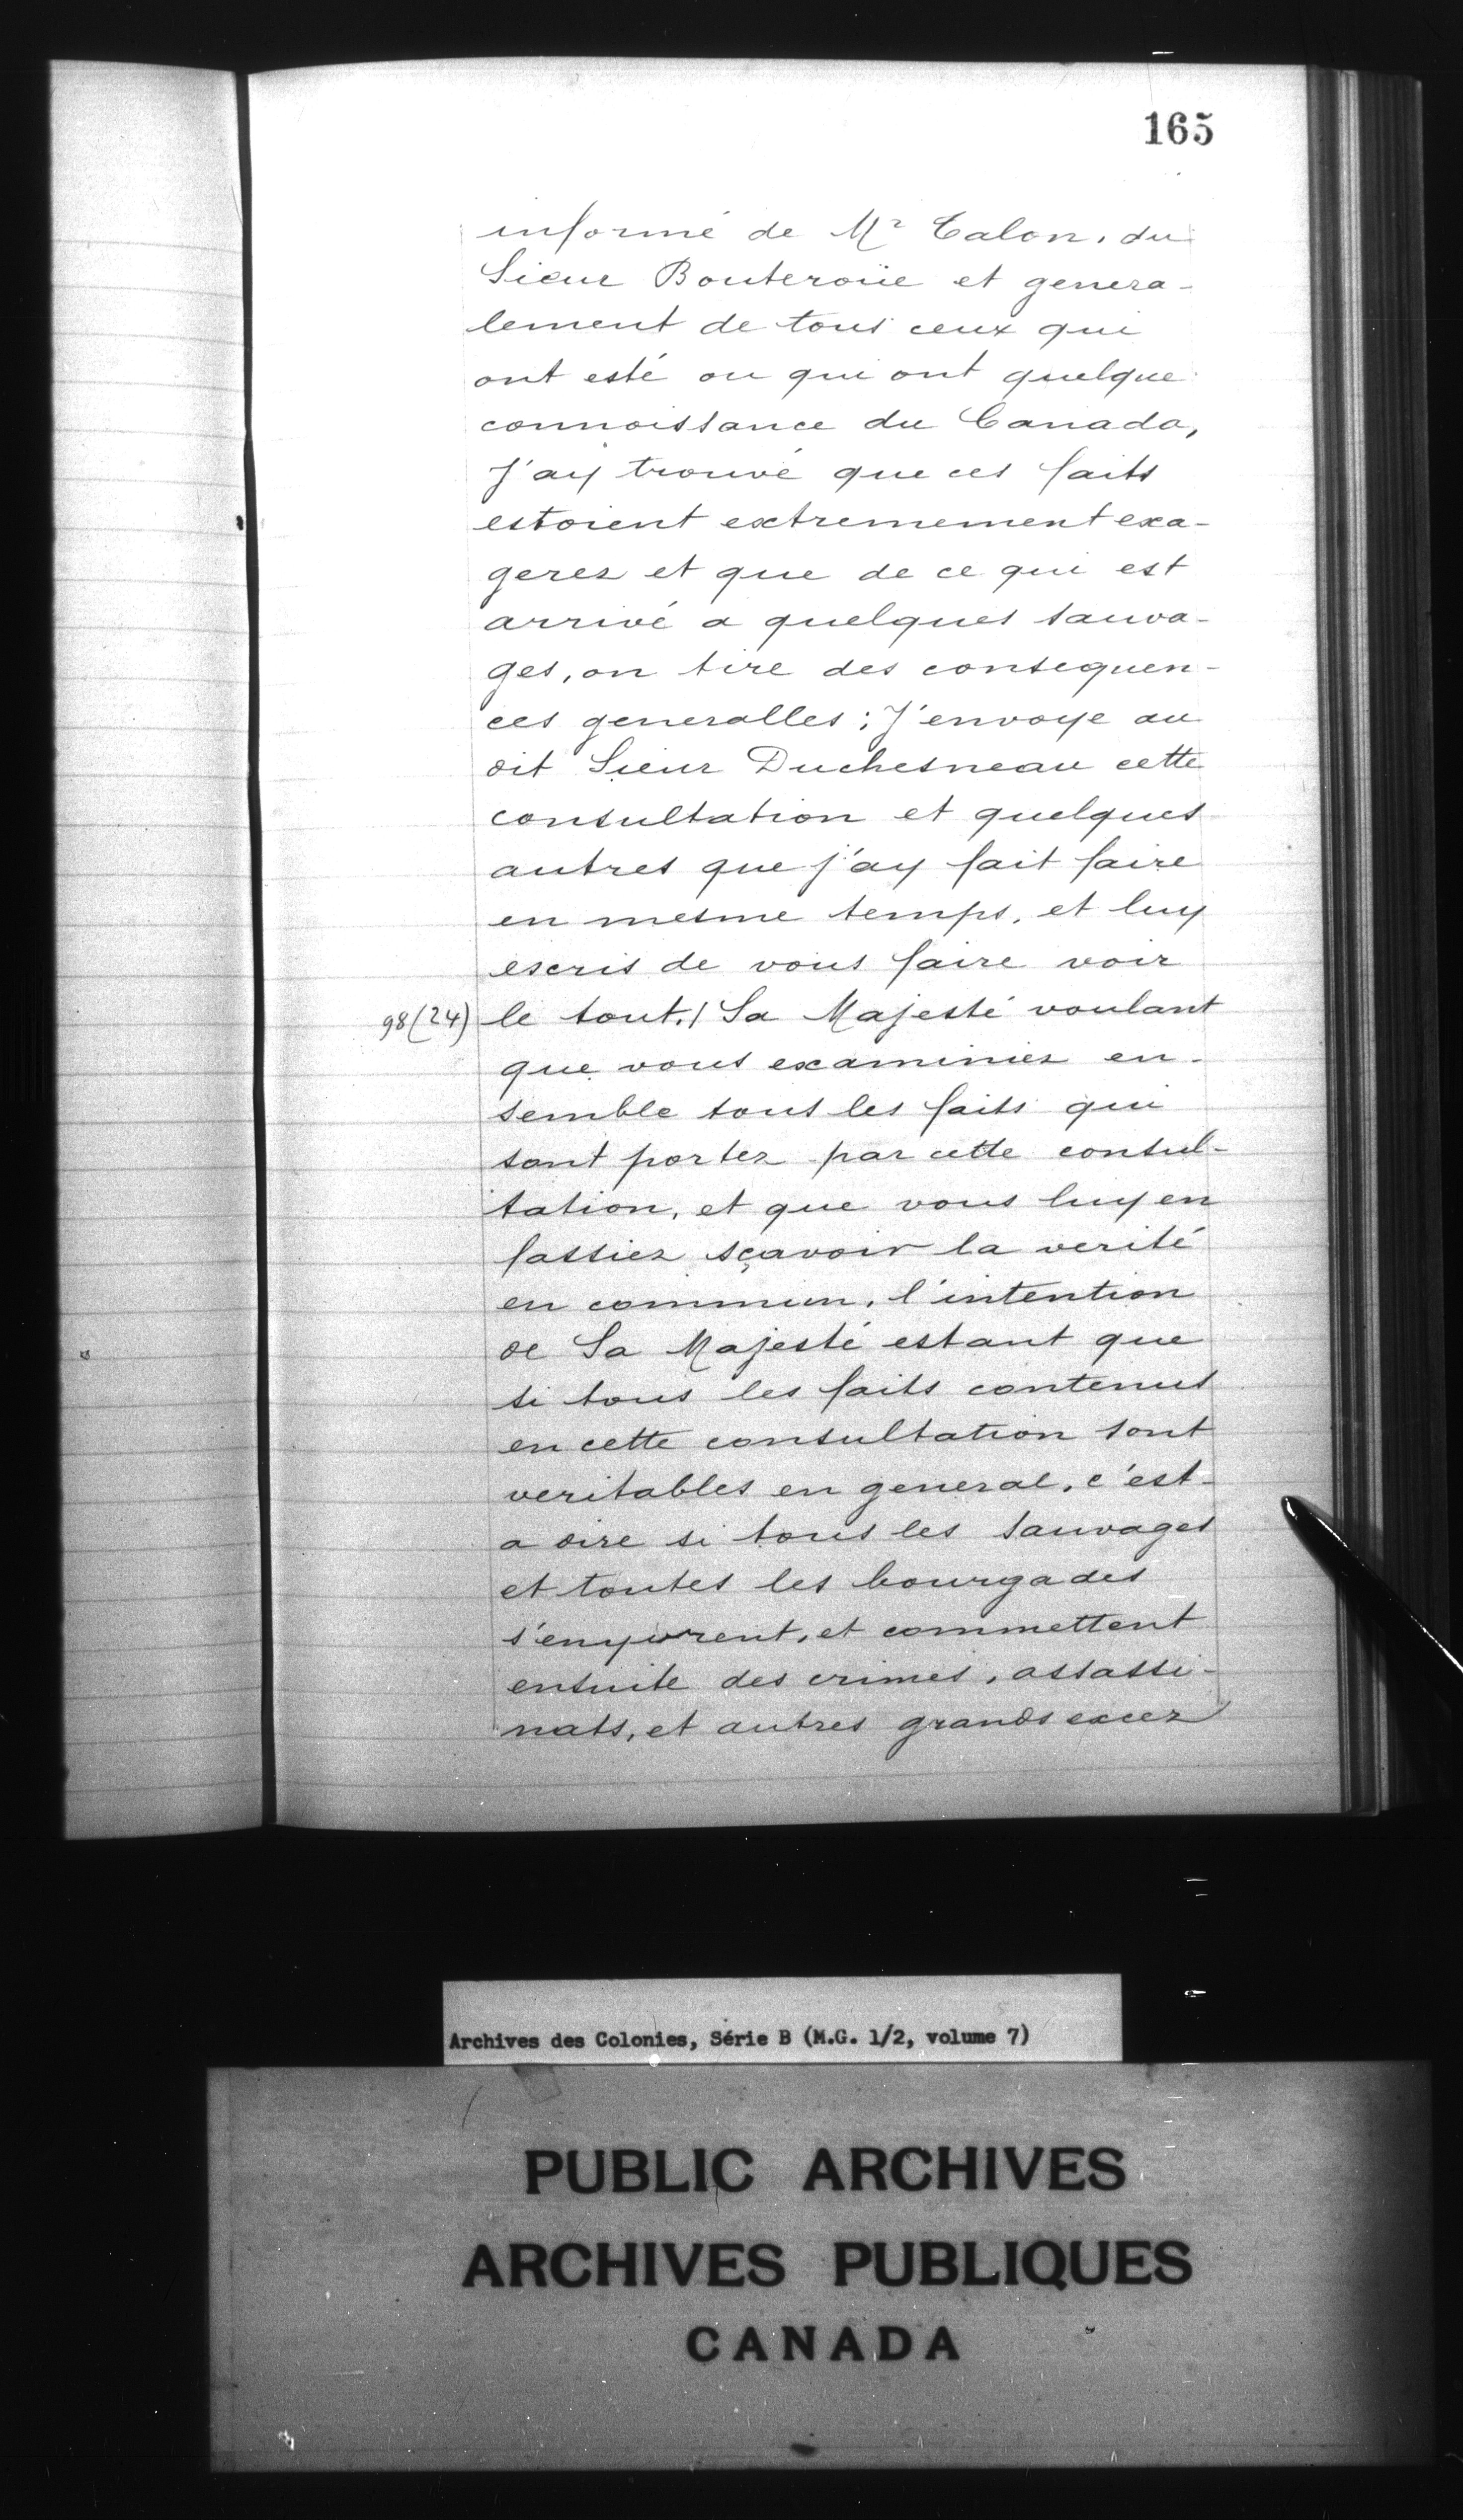 165
informé de Mr Talon, du
Sieur Bouteroüe et genera-
lement de tous ceux qui
ont esté ou qui ont quelque
connoissance du Canada,
J'ay trouvé que ces faits
estoient extremement exa-
gerez et que de ce qui est
arrivé a quelques sauva-
ges, on tire des consequen-
ces generalles; J'envoye au
dit Sieur Duchesneau cette
consultation et quelques
autres que j'ay fait faire
en mesme temps, et luy
escris de vous faire voir
98(24) le tout./ Sa Majesté voulant
que vous examiniez en-
semble tous les faits qui
sont portez par cette consul-
tation, et que vous luy en
fassiez sçavoir la verité
en commun, l'intention
de Sa Majesté estant que
si tous les faits contenus
en cette consultation sont
veritables en general, c'est-
a dire si tous les sauvages
et toutes les bourgades
s'enyvrent, et commettent
ensuite des crimes, assassi-
nats, et autres grands excez
Archives des Colonies, Série B (M.G. 1/2, volume 7)
PUBLIC ARCHIVES
ARCHIVES PUBLIQUES
CANADA